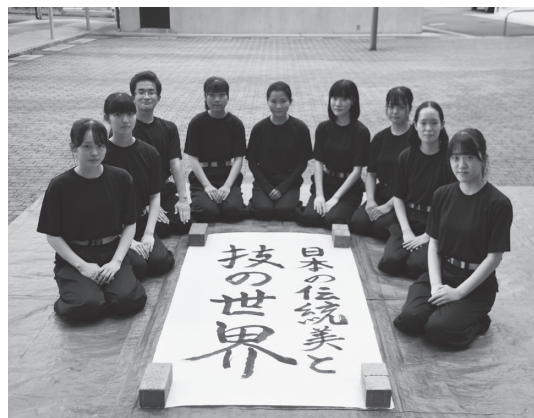 日本の伝統美と
技の世界